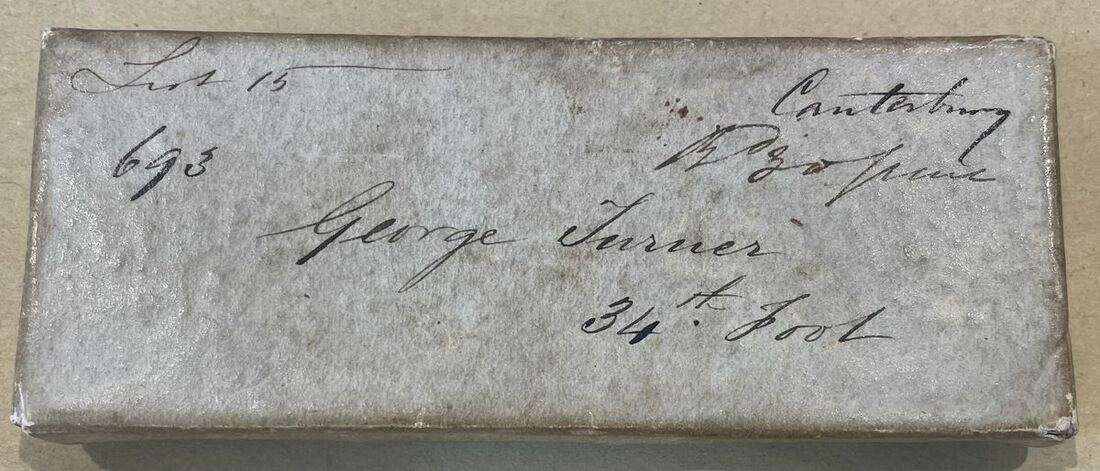 List 15
Canterbury
693
Rd 30 June
George Turner
34th Foot